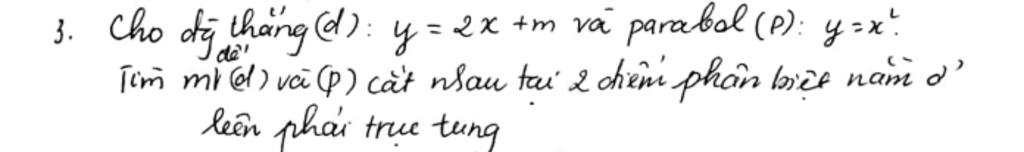 3. Cho đg thẳng (d): y = 2x + m và parabol (P): y = x².
Tìm m để (d) và (P) cắt nhau tại 2 điểm phân biệt nằm ở
bên phải trục tung